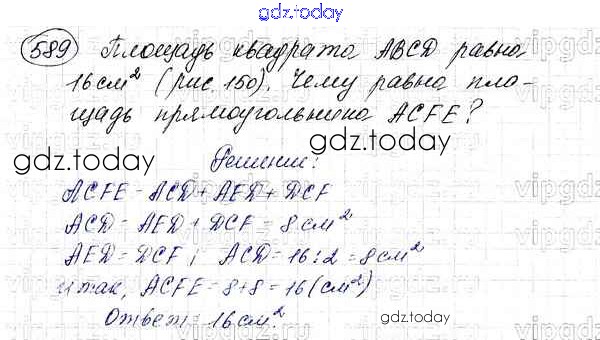 gdz.today
589 Площадь квадрата ABCD равна
16 см² (рис. 150). Чему равна пло-
щадь прямоугольника ACFE?
gdz.today
gdz.today
Решение:
ACFE = ACD + AED + DCF
ACD = AED + DCF = 8 см²
AED = DCF; ACD = 16 : 2 = 8 см²
итак, ACFE = 8 + 8 = 16 (см²)
Ответ: 16 см².
gdz.today